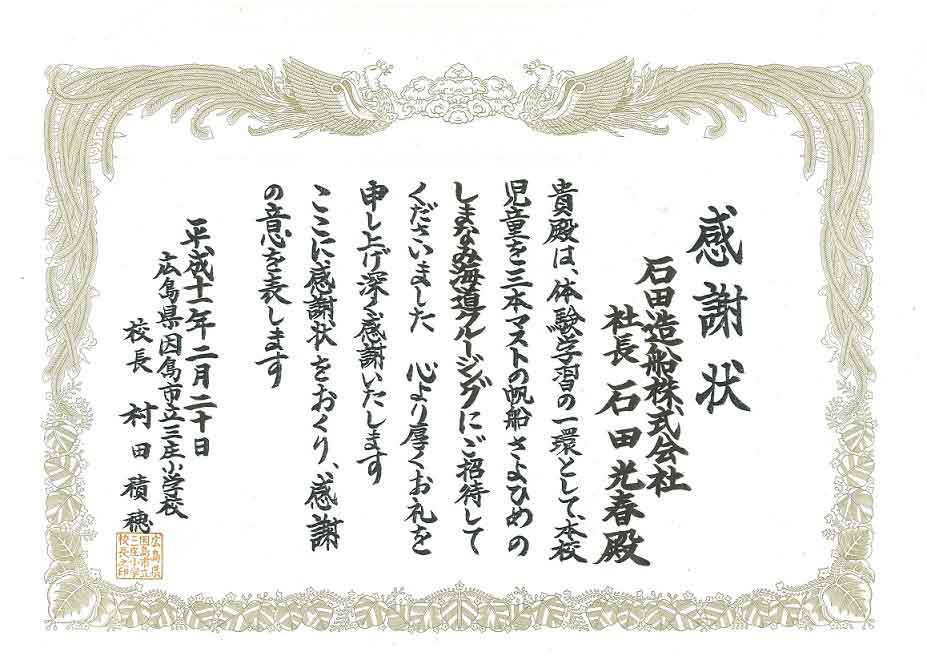 感謝状
石田造船株式会社
社長 石田光春殿
貴殿は、体験学習の一環として、本校
児童を三本マストの帆船さよひめの
しまなみ海道クルージングにご招待して
くださいました 心より厚くお礼を
申し上げ深く感謝いたします
ここに感謝状をおくり、感謝
の意を表します
平成十一年二月二十日
広島県因島市立三庄小学校
校長 村田積穂
広島県
因島市立
三庄小学
校長之印